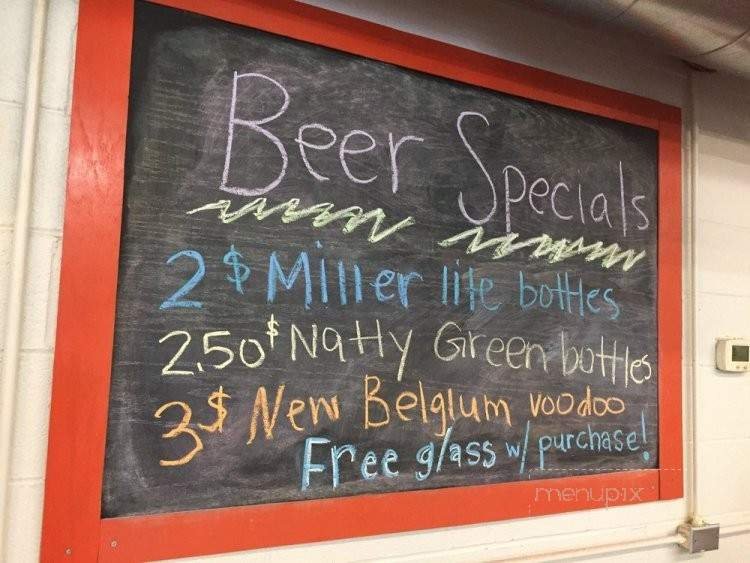 Beer Specials
2$ Miller lite bottles
2.50$ Natty Green bottles
3$ New Belgium voodoo
Free glass w/ purchase!
menupix